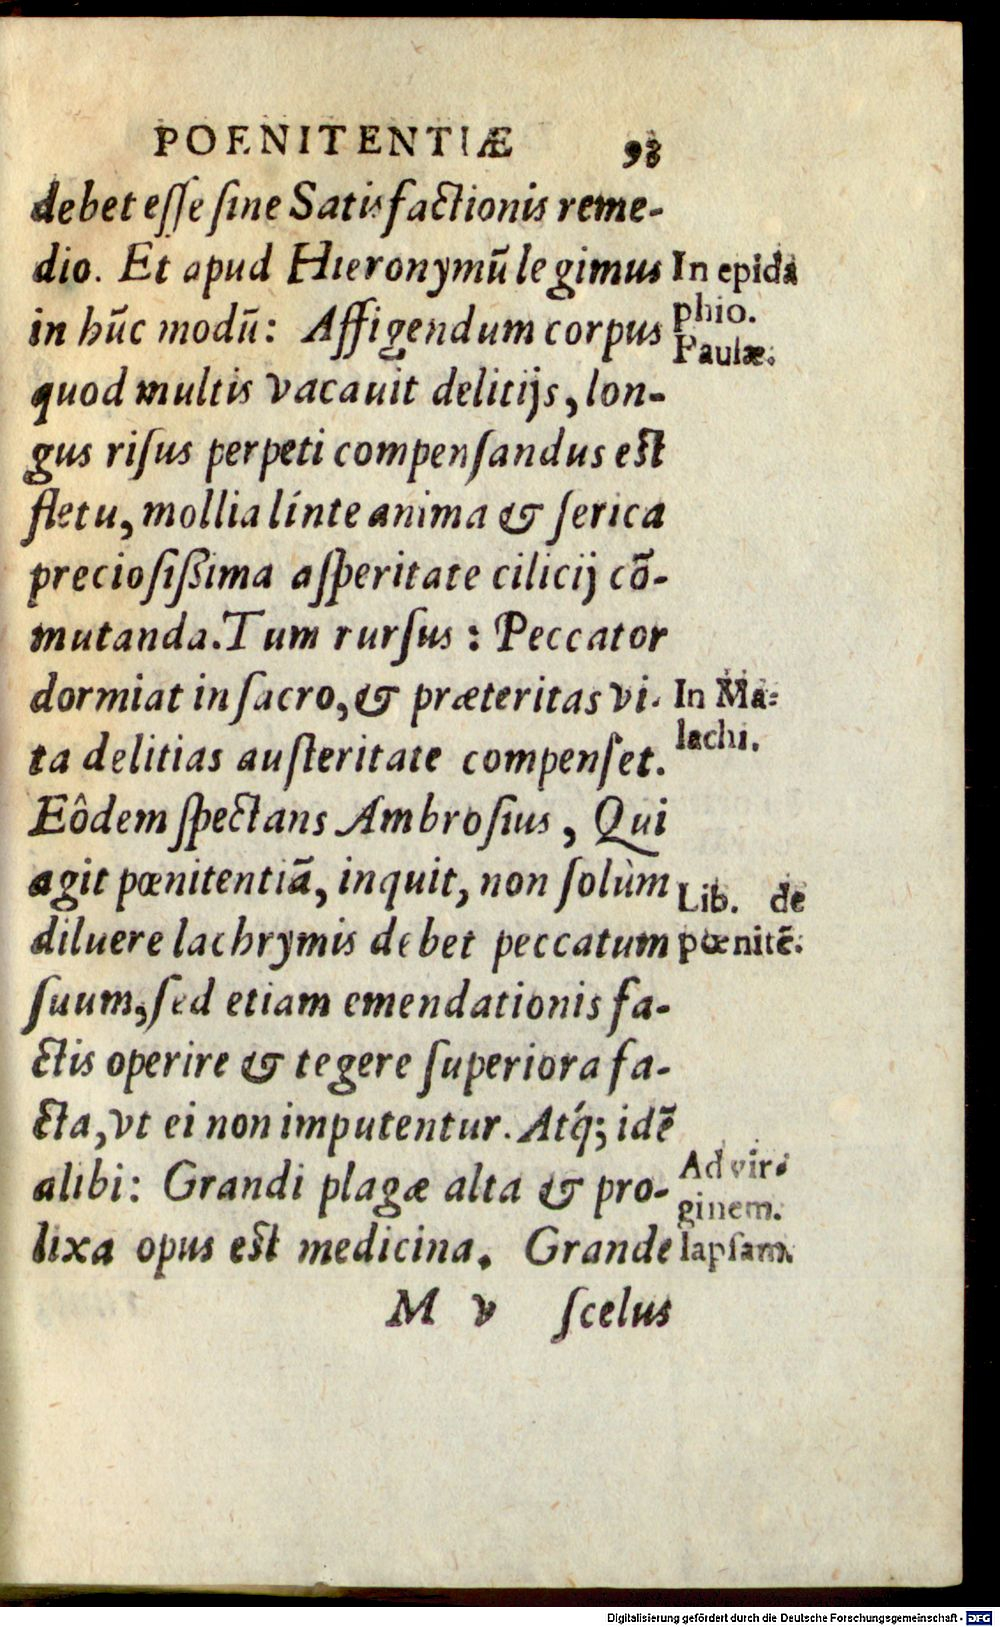 POENITENTIÆ 93
debet eſſe ſine Satisfactionis reme-
dio. Et apud Hieronymū legimus
in hūc modū: Affigendum corpus
quod multis vacauit delitijs, lon-
gus riſus perpeti compenſandus est
fletu, mollia línteanima & ſerica
precioſißima aſperitate cilicij cō-
mutanda. Tum rurſus: Peccator
dormiat in ſacro, & præteritas vi-
ta delitias auſteritate compenſet.
Eôdem ſpectans Ambroſius, Qui
agit pœnitentiā, inquit, non ſolùm
diluere lachrymis debet peccatum
ſuum, ſed etiam emendationis fa-
ctis operire & tegere ſuperiora fa-
cta, vt ei non imputentur. Atq́; idē
alibi: Grandi plagæ alta & pro-
lixa opus est medicina. Grande
M v ſcelus
In epida
phio.
Paulæ.
In Ma-
lachi.
Lib. de
pœnitē.
Ad vir-
ginem.
lapſam.
Digitalisierung gefördert durch die Deutsche Forschungsgemeinschaft - DFG